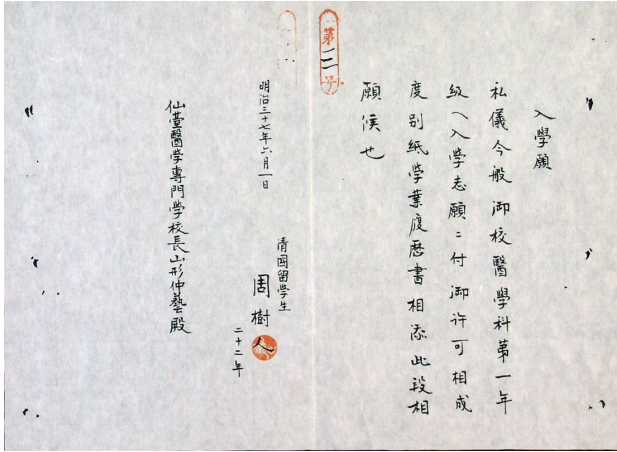 入學願
私儀今般御校醫學科第一年
級ヘ入学志願ニ付御許可相成
度別紙学業履歴書相添此段相
願候也
第二号
明治三十七年六月一日
清国留學生
周樹人
二十二年
仙臺醫学專門学校長山形仲藝殿